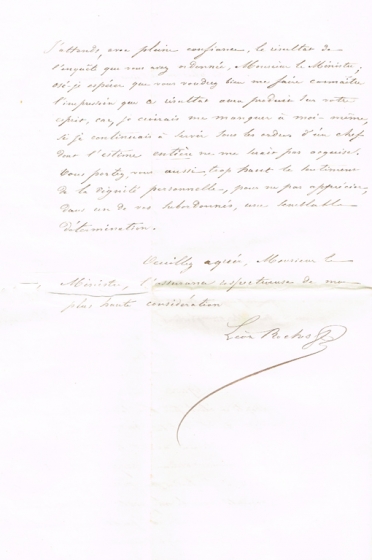 J'attends, avec pleine confiance, le résultat de
l'enquête que vous avez ordonnée, Monsieur le Ministre;
osé-je espérer que vous voudrez bien me faire connaître
l'impression que ce résultat aura produite sur votre
esprit, car, je croirais me manquer à moi-même,
si je continuais à servir sous les ordres d'un chef
dont l'estime entière ne me serait pas acquise.
Vous portez, vous aussi, trop haut le sentiment
de la dignité personnelle, pour ne pas apprécier,
dans un de vos subordonnés, une semblable
détermination.
Veuillez agréer, Monsieur le
Ministre, l'assurance respectueuse de ma
plus haute considération
Léon